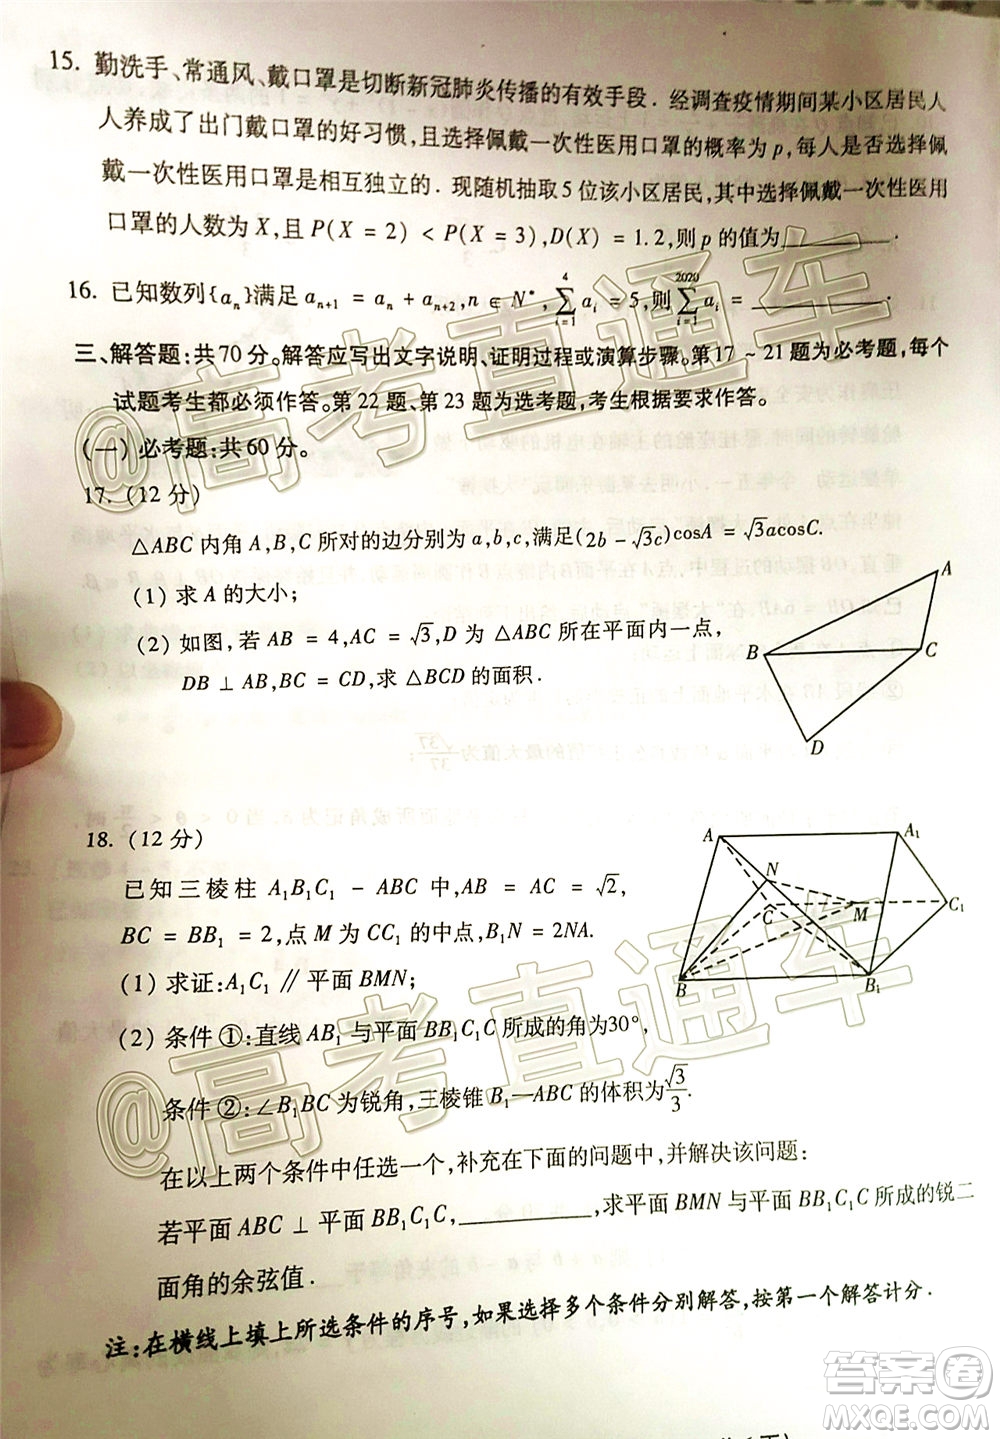 15. 勤洗手、常通风、戴口罩是切断新冠肺炎传播的有效手段．经调查疫情期间某小区居民人
人养成了出门戴口罩的好习惯，且选择佩戴一次性医用口罩的概率为p，每人是否选择佩
戴一次性医用口罩是相互独立的．现随机抽取5位该小区居民，其中选择佩戴一次性医用
口罩的人数为X，且P(X = 2) < P(X = 3), D(X) = 1.2，则p的值为________.
16. 已知数列{aₙ}满足 aₙ₊₁ = aₙ + aₙ₊₂, n ∈ N*, ∑_{i=1}^{4} aᵢ = 5，则 ∑_{i=1}^{2020} aᵢ = ________.
三、解答题：共70分。解答应写出文字说明、证明过程或演算步骤。第17～21题为必考题，每个
试题考生都必须作答。第22题、第23题为选考题，考生根据要求作答。
(一) 必考题：共60分。
17. (12分)
△ABC内角A,B,C所对的边分别为a,b,c，已知(2b - √3c)cosA = √3acosC.
(1) 求A的大小；
(2) 如图，若AB = 4, AC = √3, D为△ABC所在平面内一点，
DB ⊥ AB, BC = CD，求△BCD的面积．
A
B
C
D
18. (12分)
已知三棱柱A₁B₁C₁ - ABC中，AB = AC = √2,
BC = BB₁ = 2，点M为CC₁的中点，B₁N = 2NA.
(1) 求证：A₁C₁ ∥ 平面BMN；
(2) 条件①：直线AB₁与平面BB₁C₁C所成的角为30°，
条件②：∠B₁BC为锐角，三棱锥B₁—ABC的体积为√3/3.
在以上两个条件中任选一个，补充在下面的问题中，并解决该问题：
若平面ABC ⊥ 平面BB₁C₁C, ________，求平面BMN与平面BB₁C₁C所成的锐二
面角的余弦值．
注：在横线上填上所选条件的序号，如果选择多个条件分别解答，按第一个解答计分．
A
A₁
N
C
M
C₁
B
B₁
@高考直通车
@高考直通车
答案卷
MXQE.COM